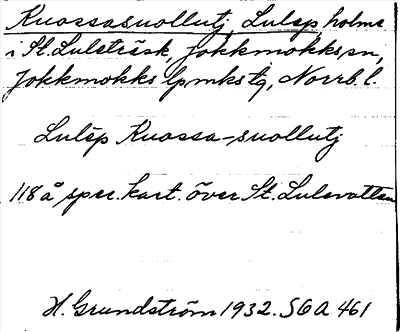 Kuossasuollutj, Lulep holme
i St. Luleträsk, Jokkmokks sn,
Jokkmokks lpmkstg, Norrb. l.
Lulēp Kuossa-suollutj
118 å spec. kart. över St. Lulevatten
H. Grundström 1932. SOA 461